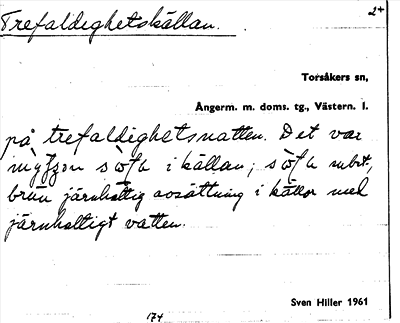 Trefaldighetskällan.
2+
Torsåkers sn,
Ångerm. m. doms. tg., Västern. l.
på trefaldighetsnatten. Det var
söfa i källan; söfa subst.,
brun järnhaltig avsättning i källor med
järnhaltigt vatten.
Sven Hiller 1961
174